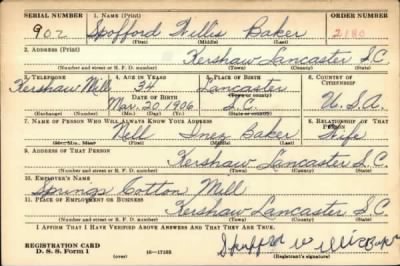 SERIAL NUMBER 1. NAME (Print) ORDER NUMBER
902 Spofford Willis Baker 2180
(First) (Middle) (Last)
2. ADDRESS (Print)
Kershaw Lancaster S.C.
(Number and street or R. F. D. number) (Town) (County) (State)
3. TELEPHONE 4. AGE IN YEARS 5. PLACE OF BIRTH 6. COUNTRY OF CITIZENSHIP
Kershaw Mill 34 Lancaster
DATE OF BIRTH (Town or county)
Mar. 20, 1906 S.C. U.S.A.
(Exchange) (Number) (Mo.) (Day) (Yr.) (State or country)
7. NAME OF PERSON WHO WILL ALWAYS KNOW YOUR ADDRESS 8. RELATIONSHIP OF THAT PERSON
Nell Inez Baker Wife
(Mr., Mrs., Miss) (First) (Middle) (Last)
9. ADDRESS OF THAT PERSON
Kershaw Lancaster S.C.
(Number and street or R. F. D. number) (Town) (County) (State)
10. EMPLOYER'S NAME
Springs Cotton Mill
11. PLACE OF EMPLOYMENT OR BUSINESS
Kershaw Lancaster S.C.
(Number and street or R. F. D. number) (Town) (County) (State)
I AFFIRM THAT I HAVE VERIFIED ABOVE ANSWERS AND THAT THEY ARE TRUE.
Spofford Willis Baker
REGISTRATION CARD
D. S. S. Form 1 (over) 16—17105 (Registrant's signature)